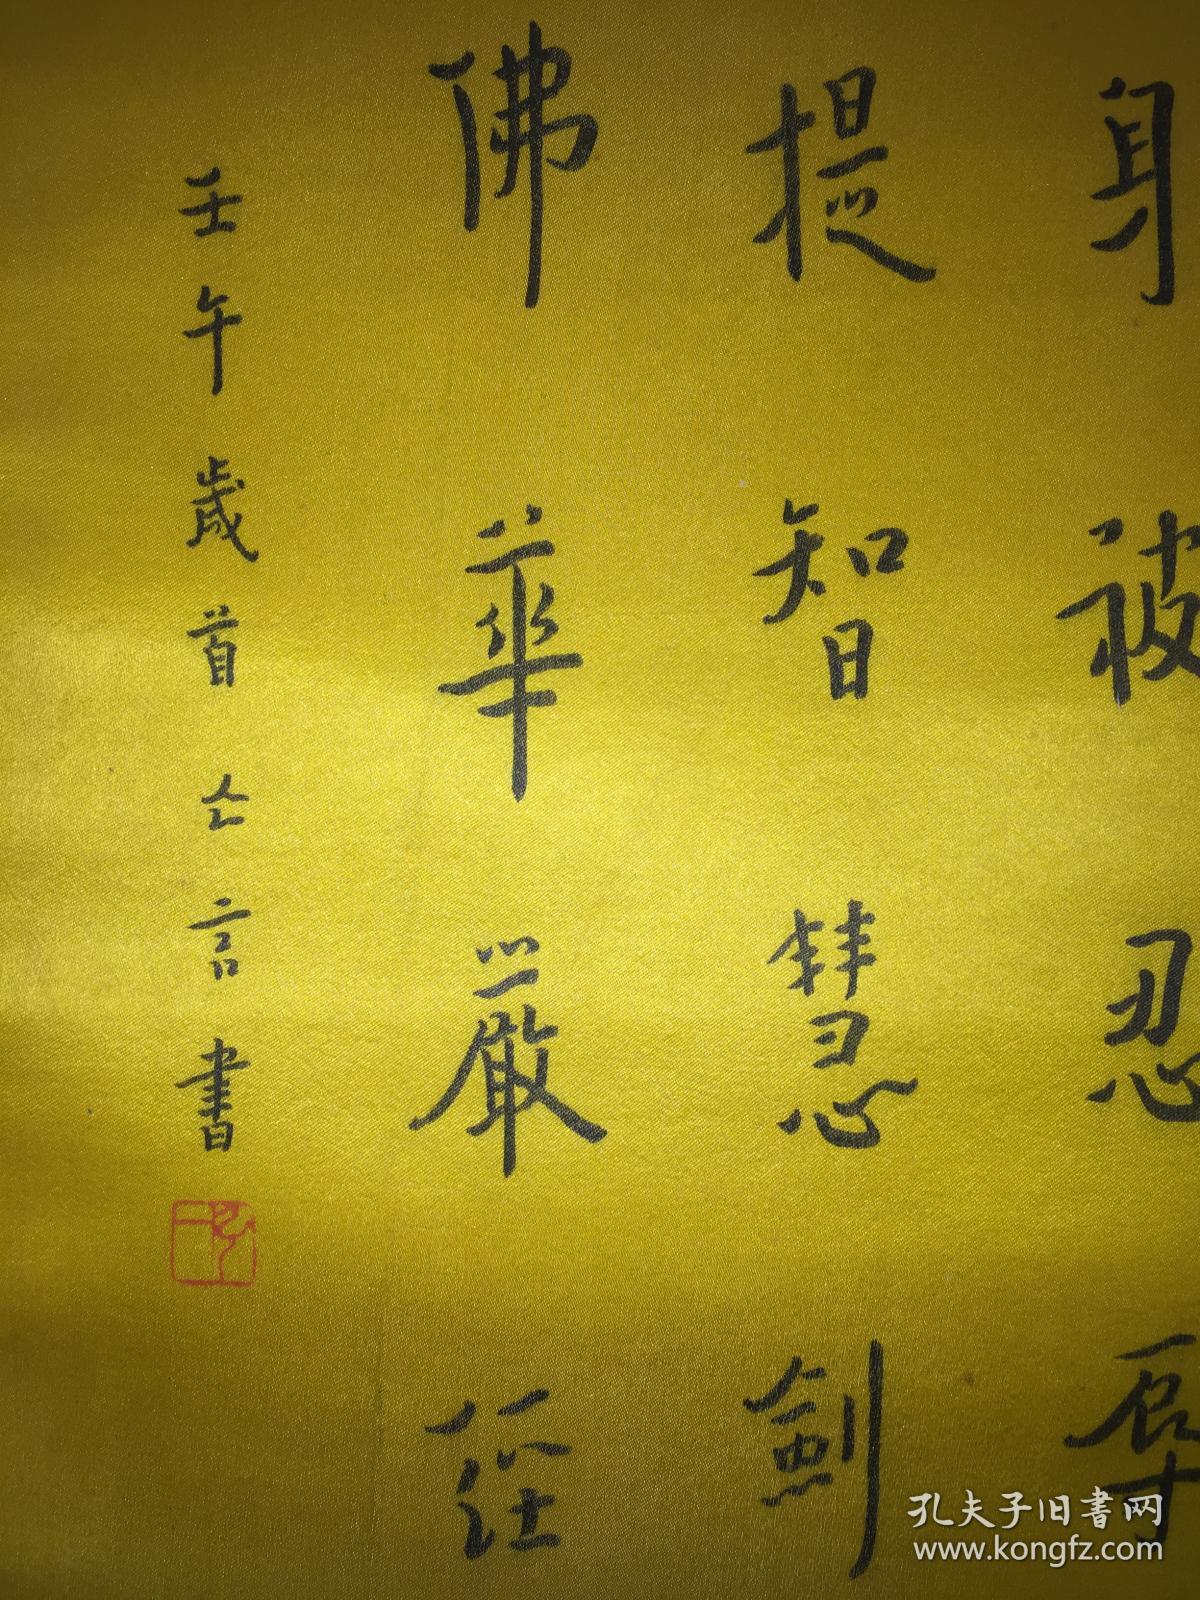 身被忍辱
提智慧劍
佛華嚴經
壬午歲首亡言書
孔夫子旧书网
www.kongfz.com